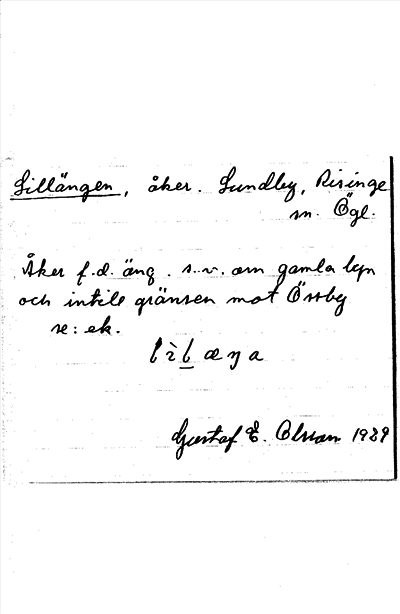 Lillängen, åker. Lundby, Risinge
sn. Ögl.
Åker f.d. äng. s.v. om gamla byn
och intill gränsen mot Össby
se: ek.
Gustaf E. Olsson 1929